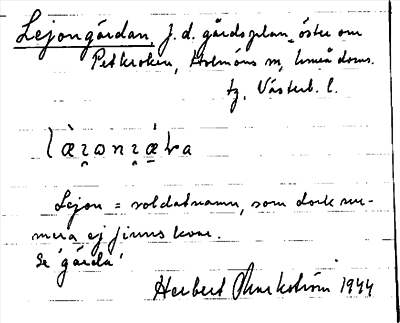 Lejongårdan, f. d. gårdsplan, öster om
Petkroken, Holmöns sn, Umeå doms.
tg, Västerb. l.
Lejon = soldatnamn, som dock nu-
mera ej finns kvar.
Se 'gårda'
Herbert 1944